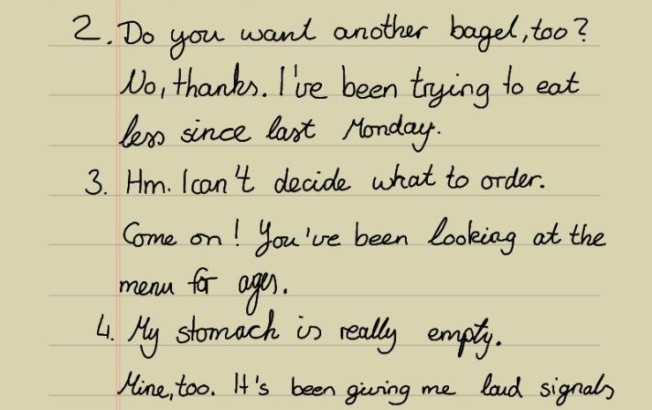 2. Do you want another bagel, too?
No, thanks. I've been trying to eat
less since last Monday.
3. Hm. I can't decide what to order.
Come on! You've been looking at the
menu for ages.
4. My stomach is really empty.
Mine, too. It's been giving me loud signals